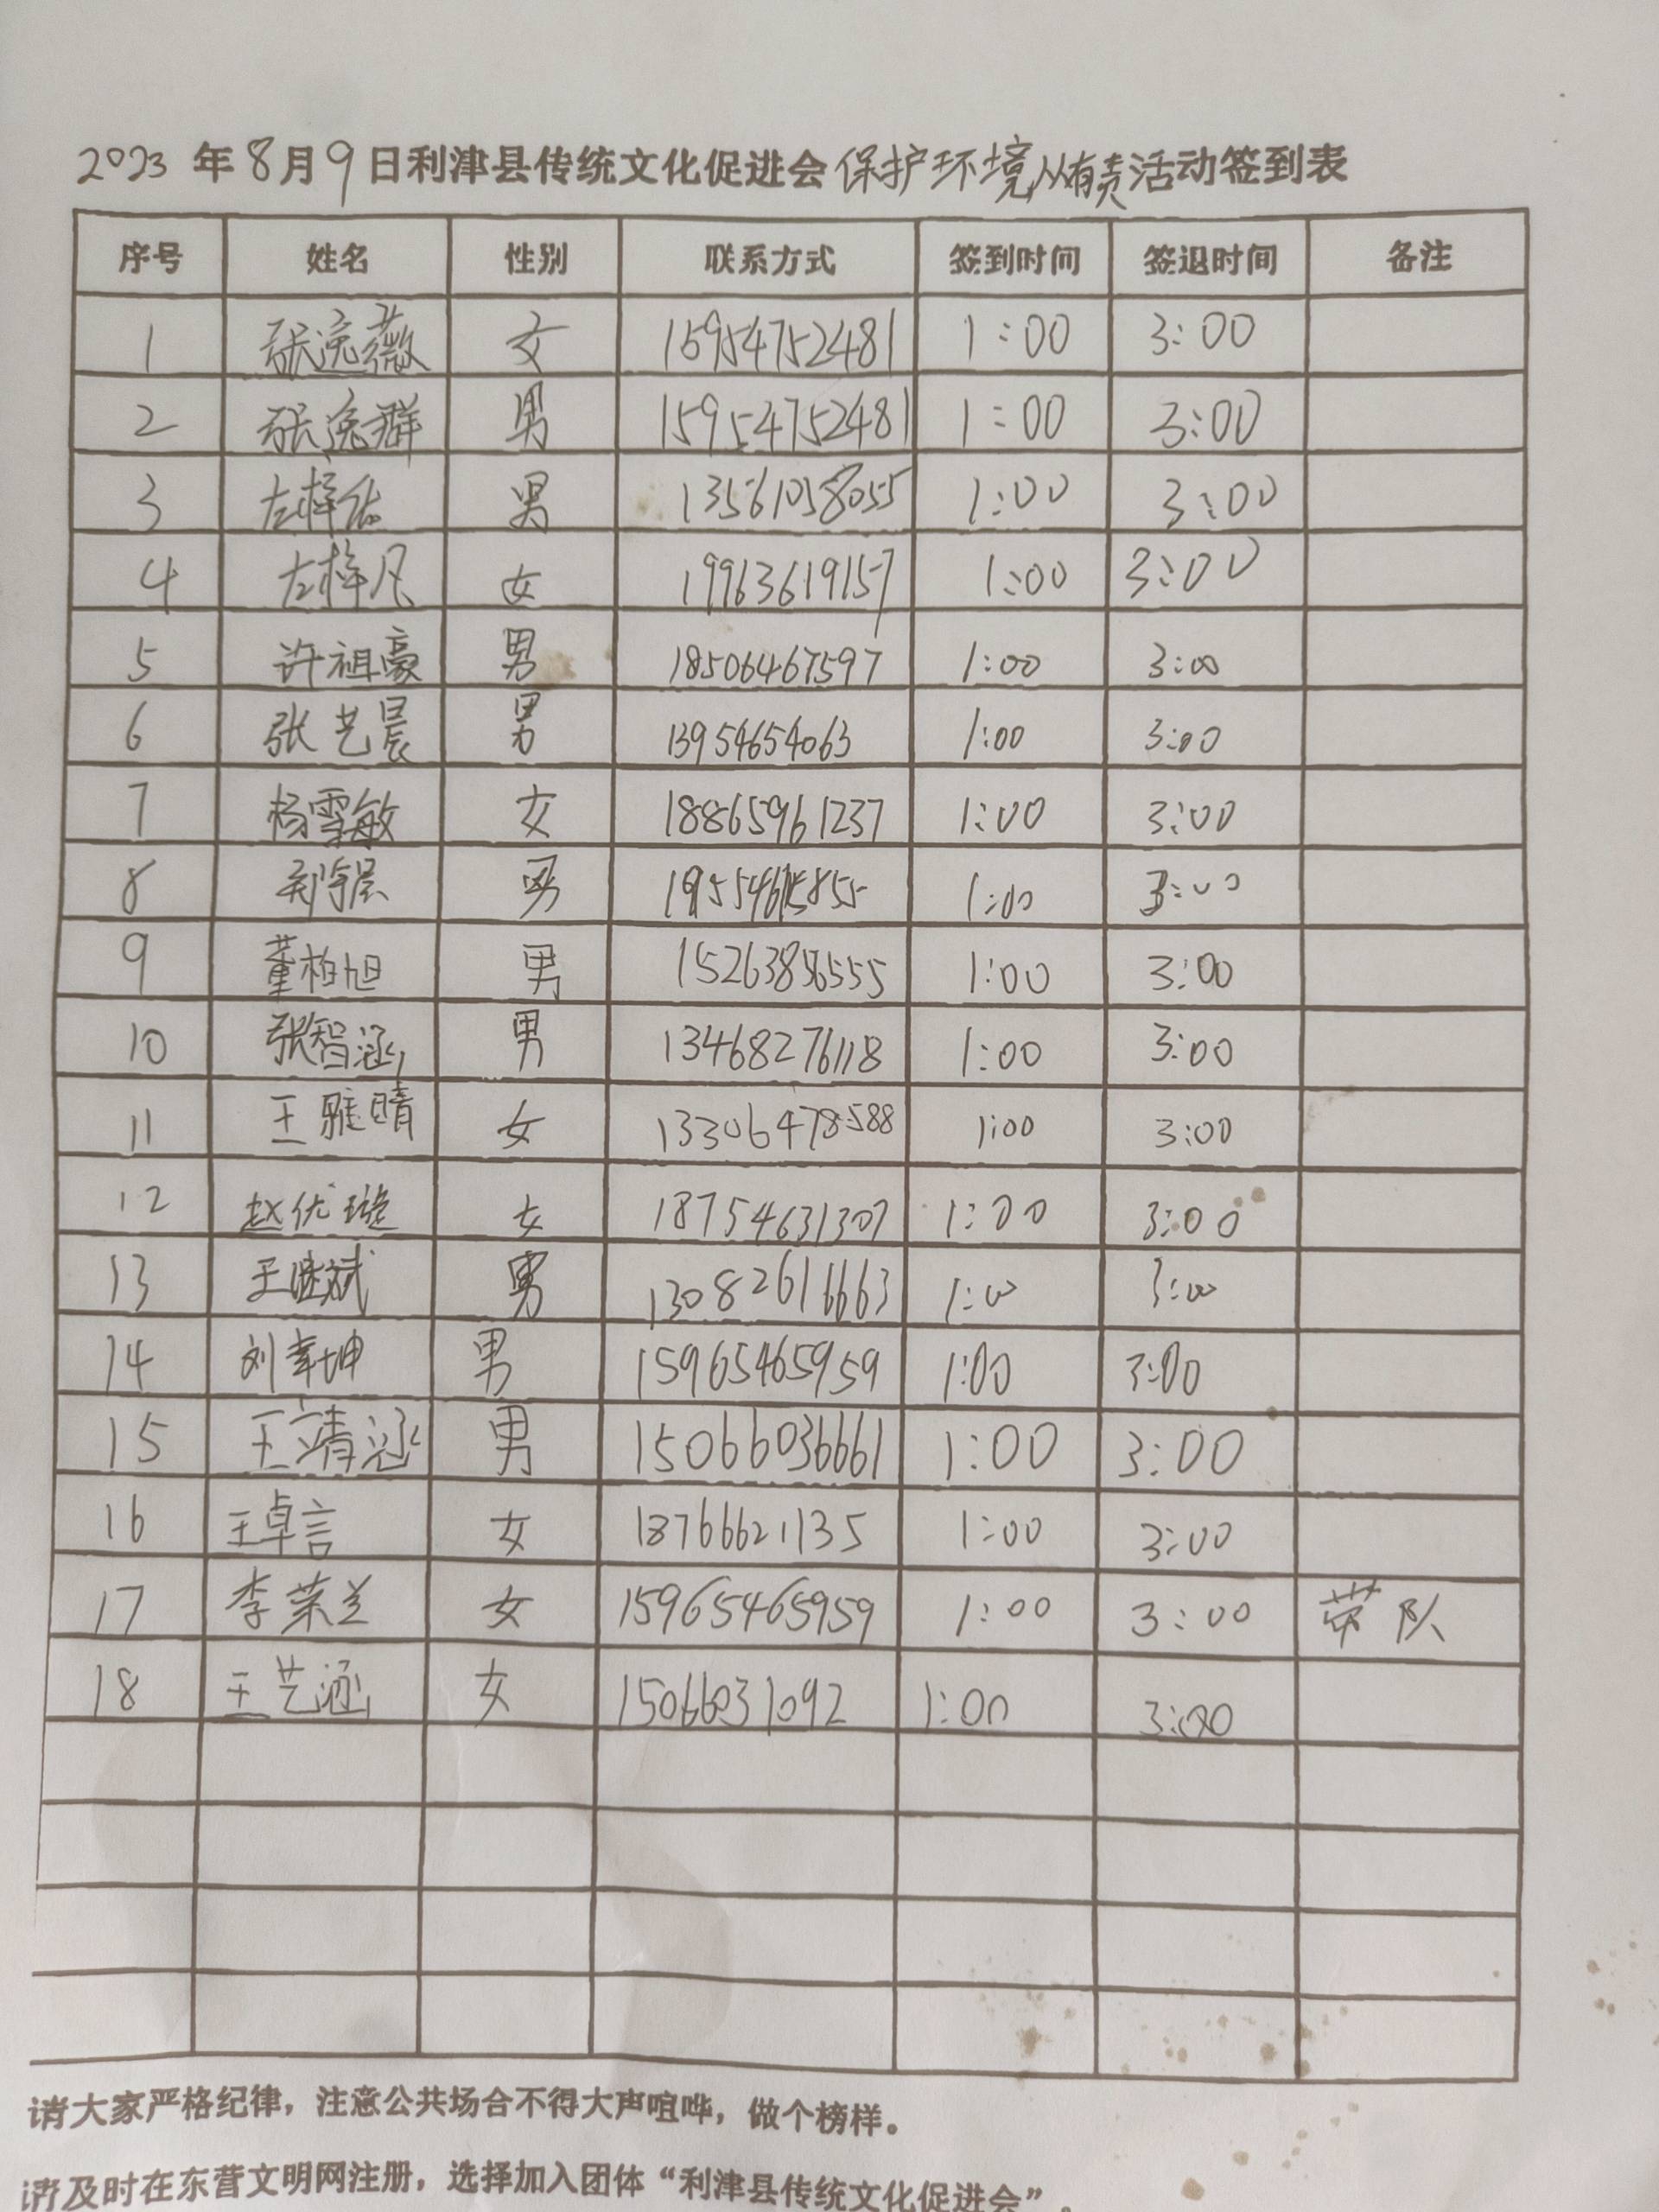 2023 年 8 月 9 日利津县传统文化促进会 保护环境人人有责 活动签到表
序号 姓名 性别 联系方式 签到时间 签退时间 备注
1 张逸薇 女 15954752481 1:00 3:00
2 张逸群 男 15954752481 1:00 3:00
3 左梓佑 男 13561058055 1:00 3:00
4 左梓凡 女 19963619157 1:00 3:00
5 许祖豪 男 18506467597 1:00 3:00
6 张艺晨 男 13954654063 1:00 3:00
7 杨雪敏 女 18865961237 1:00 3:00
8 男 1:00 3:00
9 董柏旭 男 15263856555 1:00 3:00
10 张智涵 男 13468276118 1:00 3:00
11 王雅晴 女 13306478588 1:00 3:00
12 赵优璇 女 18754631307 1:00 3:00
13 王继斌 男 13082616663 1:00 3:00
14 刘幸坤 男 15965465959 1:00 3:00
15 王靖涵 男 15066036661 1:00 3:00
16 王卓言 女 18766621135 1:00 3:00
17 李荣兰 女 15965465959 1:00 3:00 带队
18 王艺涵 女 15066031092 1:00 3:00
请大家严格纪律，注意公共场合不得大声喧哗，做个榜样。
请及时在东营文明网注册，选择加入团体“利津县传统文化促进会”。